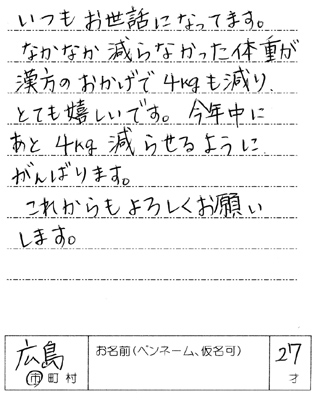 いつもお世話になってます。
なかなか減らなかった体重が
漢方のおかげで4kgも減り、
とても嬉しいです。今年中に
あと4kg減らせるように
がんばります。
これからもよろしくお願い
します。
広島
市町村
お名前(ペンネーム、仮名可)
27
才